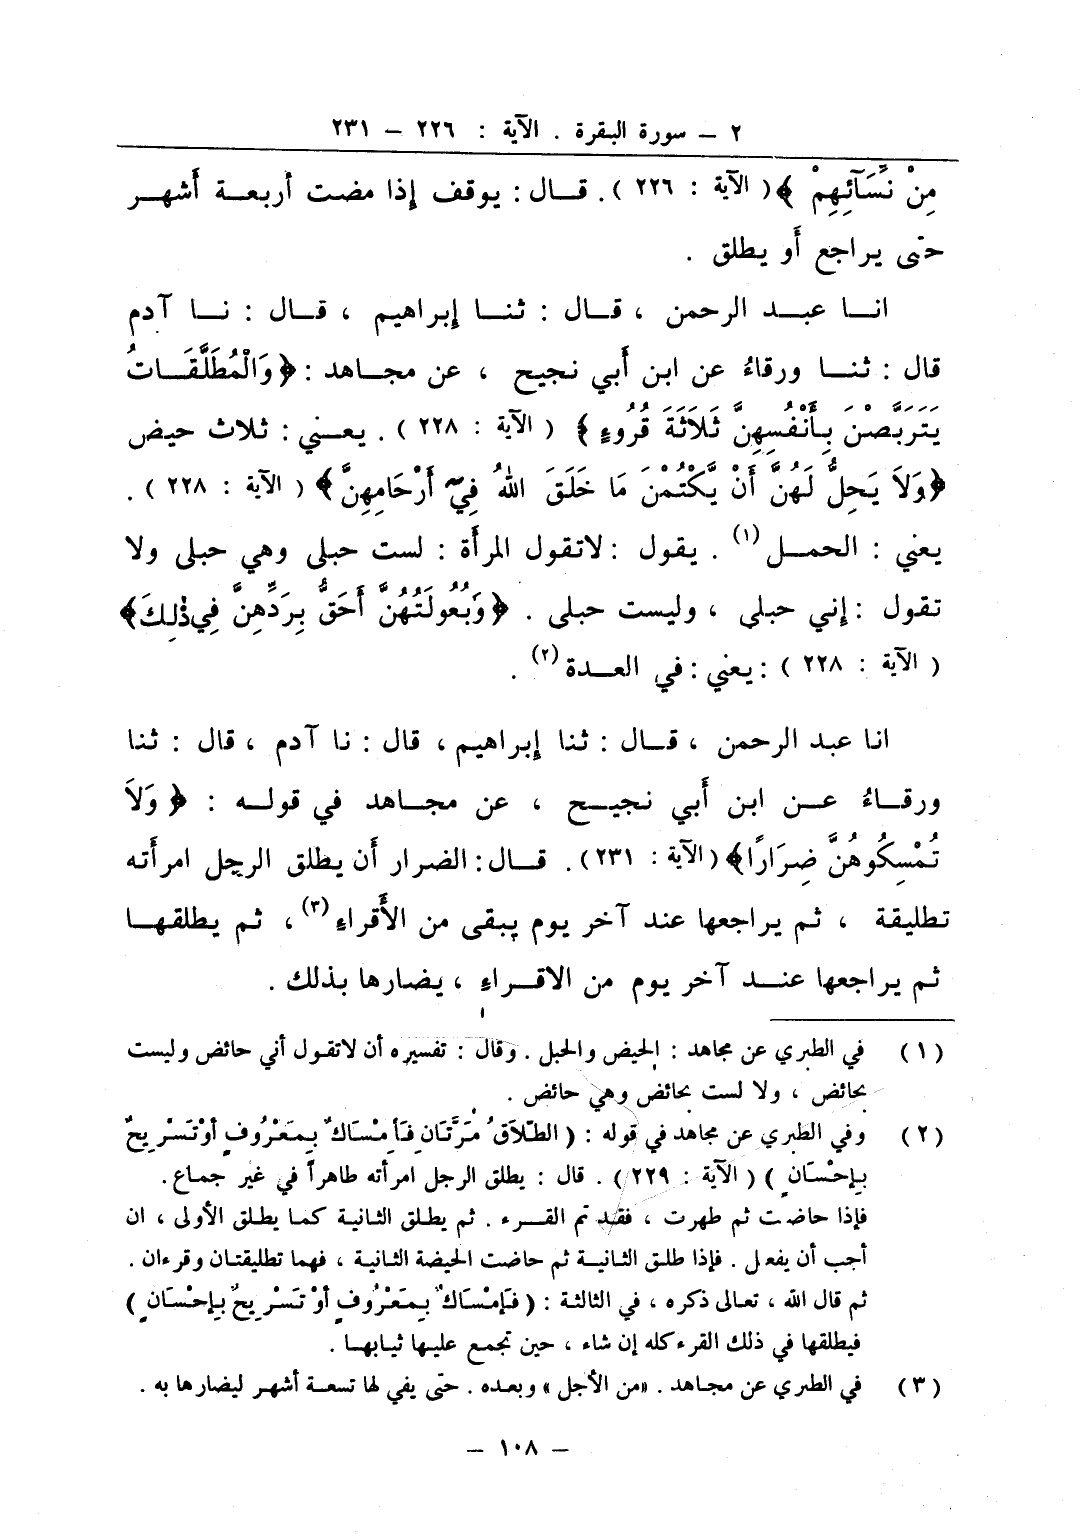 ٢ – سورة البقرة . الآية : ٢٢٦ – ٢٣١
مِنْ نِّسَآئِهِمْ ﴾ ( الآية : ٢٢٦ ) . قـال : يوقف إذا مضت أربعـة أشهـر
حتى يراجع أو يطلق .
انـا عبـد الرحمن ، قـال : ثنـا إبراهيم ، قـال : نـا آدم
قال : ثنـا ورقاءُ عن ابن أبي نجيح ، عن مجـاهد : ﴿ وَالْمُطَلَّقَـاتُ
يَتَرَبَّصْنَ بِأَنْفُسِهِنَّ ثَلَاثَةَ قُرُوءٍ ﴾ ( الآية : ٢٢٨ ) . يعـني : ثلاث حيض
﴿ وَلَا يَحِلُّ لَهُنَّ أَنْ يَّكْتُمْنَ مَا خَلَقَ اللهُ فِيٓ أَرْحَامِهِنَّ ﴾ ( الآية : ٢٢٨ ) .
يعني : الحمـل (١) . يقول : لاتقول المرأة : لست حبلى وهي حبلى ولا
تقول : إني حبلى ، وليست حبلى . ﴿ وَبُعُولَتُهُنَّ أَحَقُّ بِرَدِّهِنَّ فِي ذٰلِكَ ﴾
( الآية : ٢٢٨ ) : يعني : في العـدة (٢) .
انا عبد الرحمن ، قـال : ثنا إبراهيم ، قال : نا آدم ، قال : ثنا
ورقـاءُ عـن ابن أبي نجيـح ، عن مجـاهد في قولـه : ﴿ وَلَا
تُمْسِكُوهُنَّ ضِرَارًا ﴾ ( الآية : ٢٣١ ) . قـال : الضرار أن يطلق الرجل امرأته
تطليقة ، ثم يراجعها عند آخر يوم يبقى من الأقراء (٣) ، ثم يطلقهـا
ثم يراجعها عنـد آخر يوم من الاقـراء ، يضارها بذلك .
( ١ ) في الطبري عن مجاهد : الحيض والحبل . وقال : تفسيره أن لاتقول أني حائض وليست
بحائض ، ولا لست بحائض وهي حائض .
( ٢ ) وفي الطبري عن مجاهد في قوله : ( الطَّلَاقُ مَرَّتَانِ فَأِمْسَاكٌ بِمَعْرُوفٍ أَوْ تَسْرِيحٌ
بِإِحْسَانٍ ) ( الآية : ٢٢٩ ) . قال : يطلق الرجل امرأته طاهراً في غير جماع .
فإذا حاضت ثم طهرت ، فقد تم القـرء . ثم يطلق الثانية كما يطلق الأولى ، ان
أحب أن يفعل . فإذا طلق الثانيـة ثم حاضت الحيضة الثانية ، فهما تطليقتـان وقرءان .
ثم قال الله ، تعالى ذكره ، في الثالثة : ( فَإِمْسَاكٌ بِمَعْرُوفٍ أَوْ تَسْرِيحٌ بِإِحْسَانٍ )
فيطلقها في ذلك القرء كله إن شاء ، حين تجمع عليها ثيابهـا .
( ٣ ) في الطبري عن مجـاهد . «من الأجل» وبعده . حتى يفي لها تسعـة أشهـر ليضارها به .
– ١٠٨ –